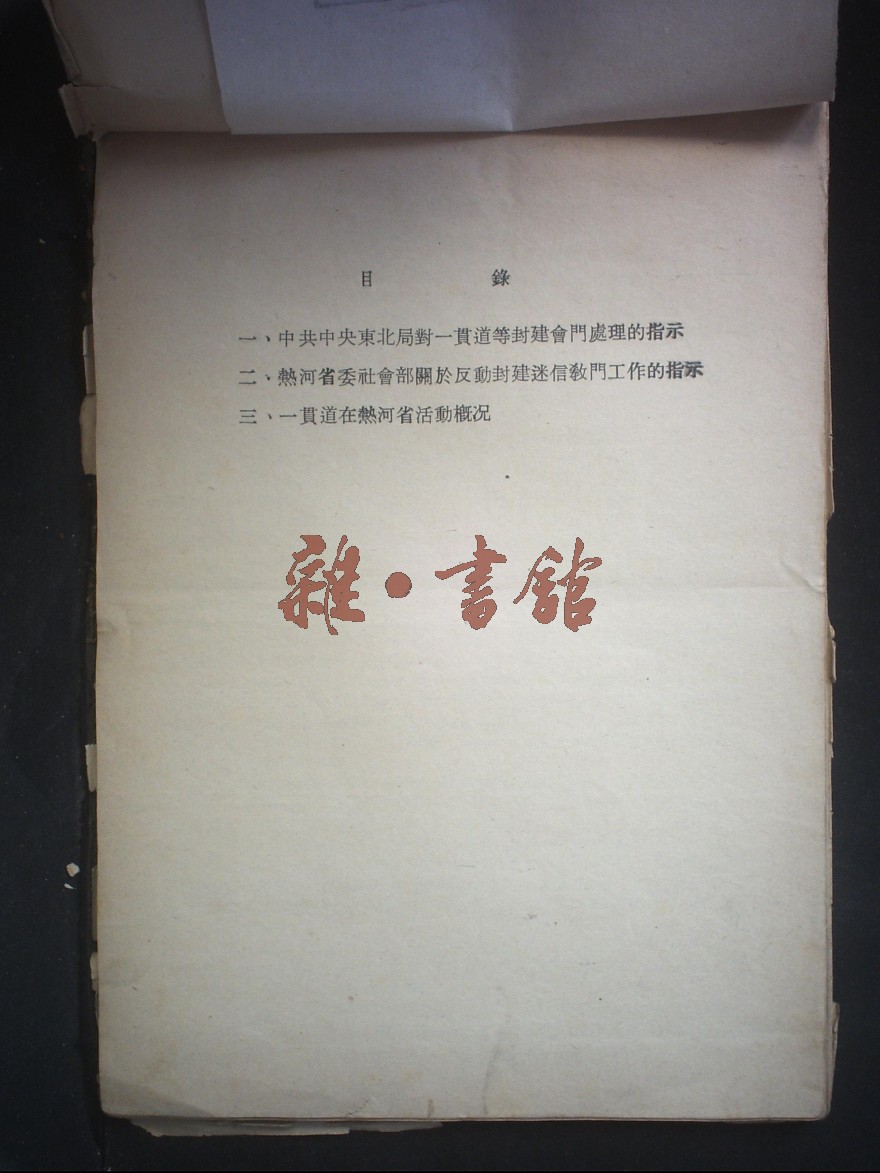 目錄
一、中共中央東北局對一貫道等封建會門處理的指示
二、熱河省委社會部關於反動封建迷信教門工作的指示
三、一貫道在熱河省活動概况
雜·書館